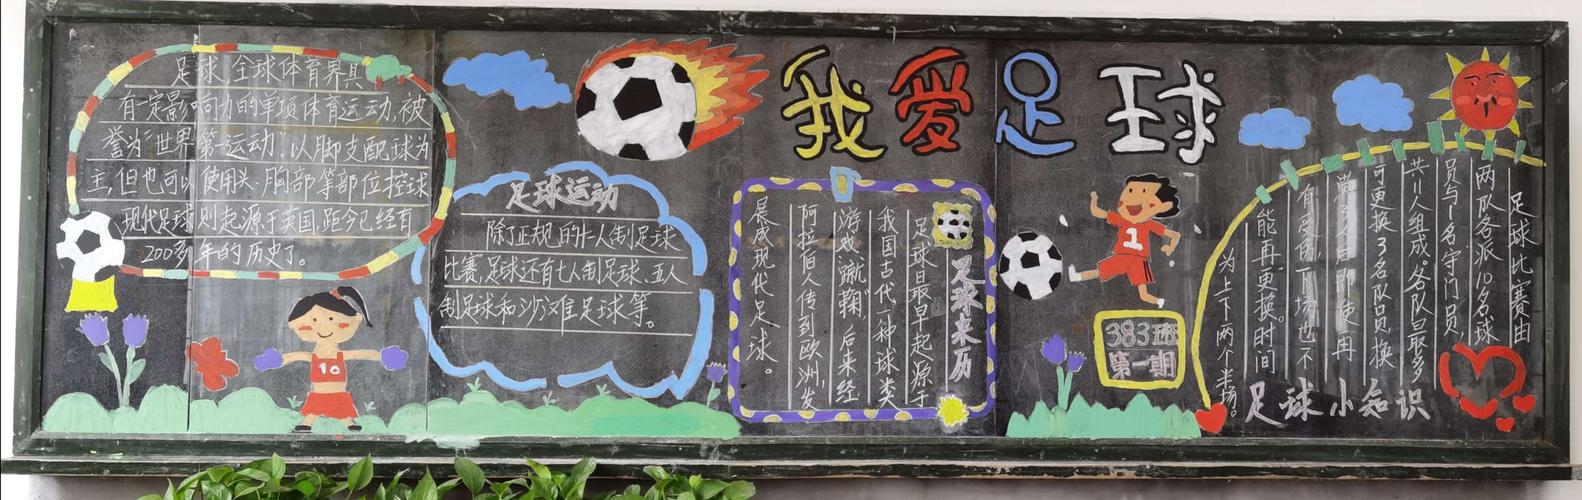 我爱足球
足球,全球体育界具
有一定影响力的单项体育运动,被
誉为“世界第一运动”。以脚支配球为
主,但也可以使用头、胸部等部位控球
现代足球则起源于英国,距今已经有
200多年的历史了。
10
足球运动
除了正规的十一人制足球
比赛,足球还有七人制足球、五人
制足球和沙滩足球等。
足球来历
足球最早起源于
我国古代一种球类
游戏“蹴鞠”,后来经
阿拉伯人传到欧洲,发
展成现代足球。
1
383班
第一期
足球比赛由
两队各派10名球
员与1名守门员,
共11人组成。各队最多
可更换3名队员,换
后即使再
有受伤下场也不
能再更换。时间
为上下两个半场。
足球小知识